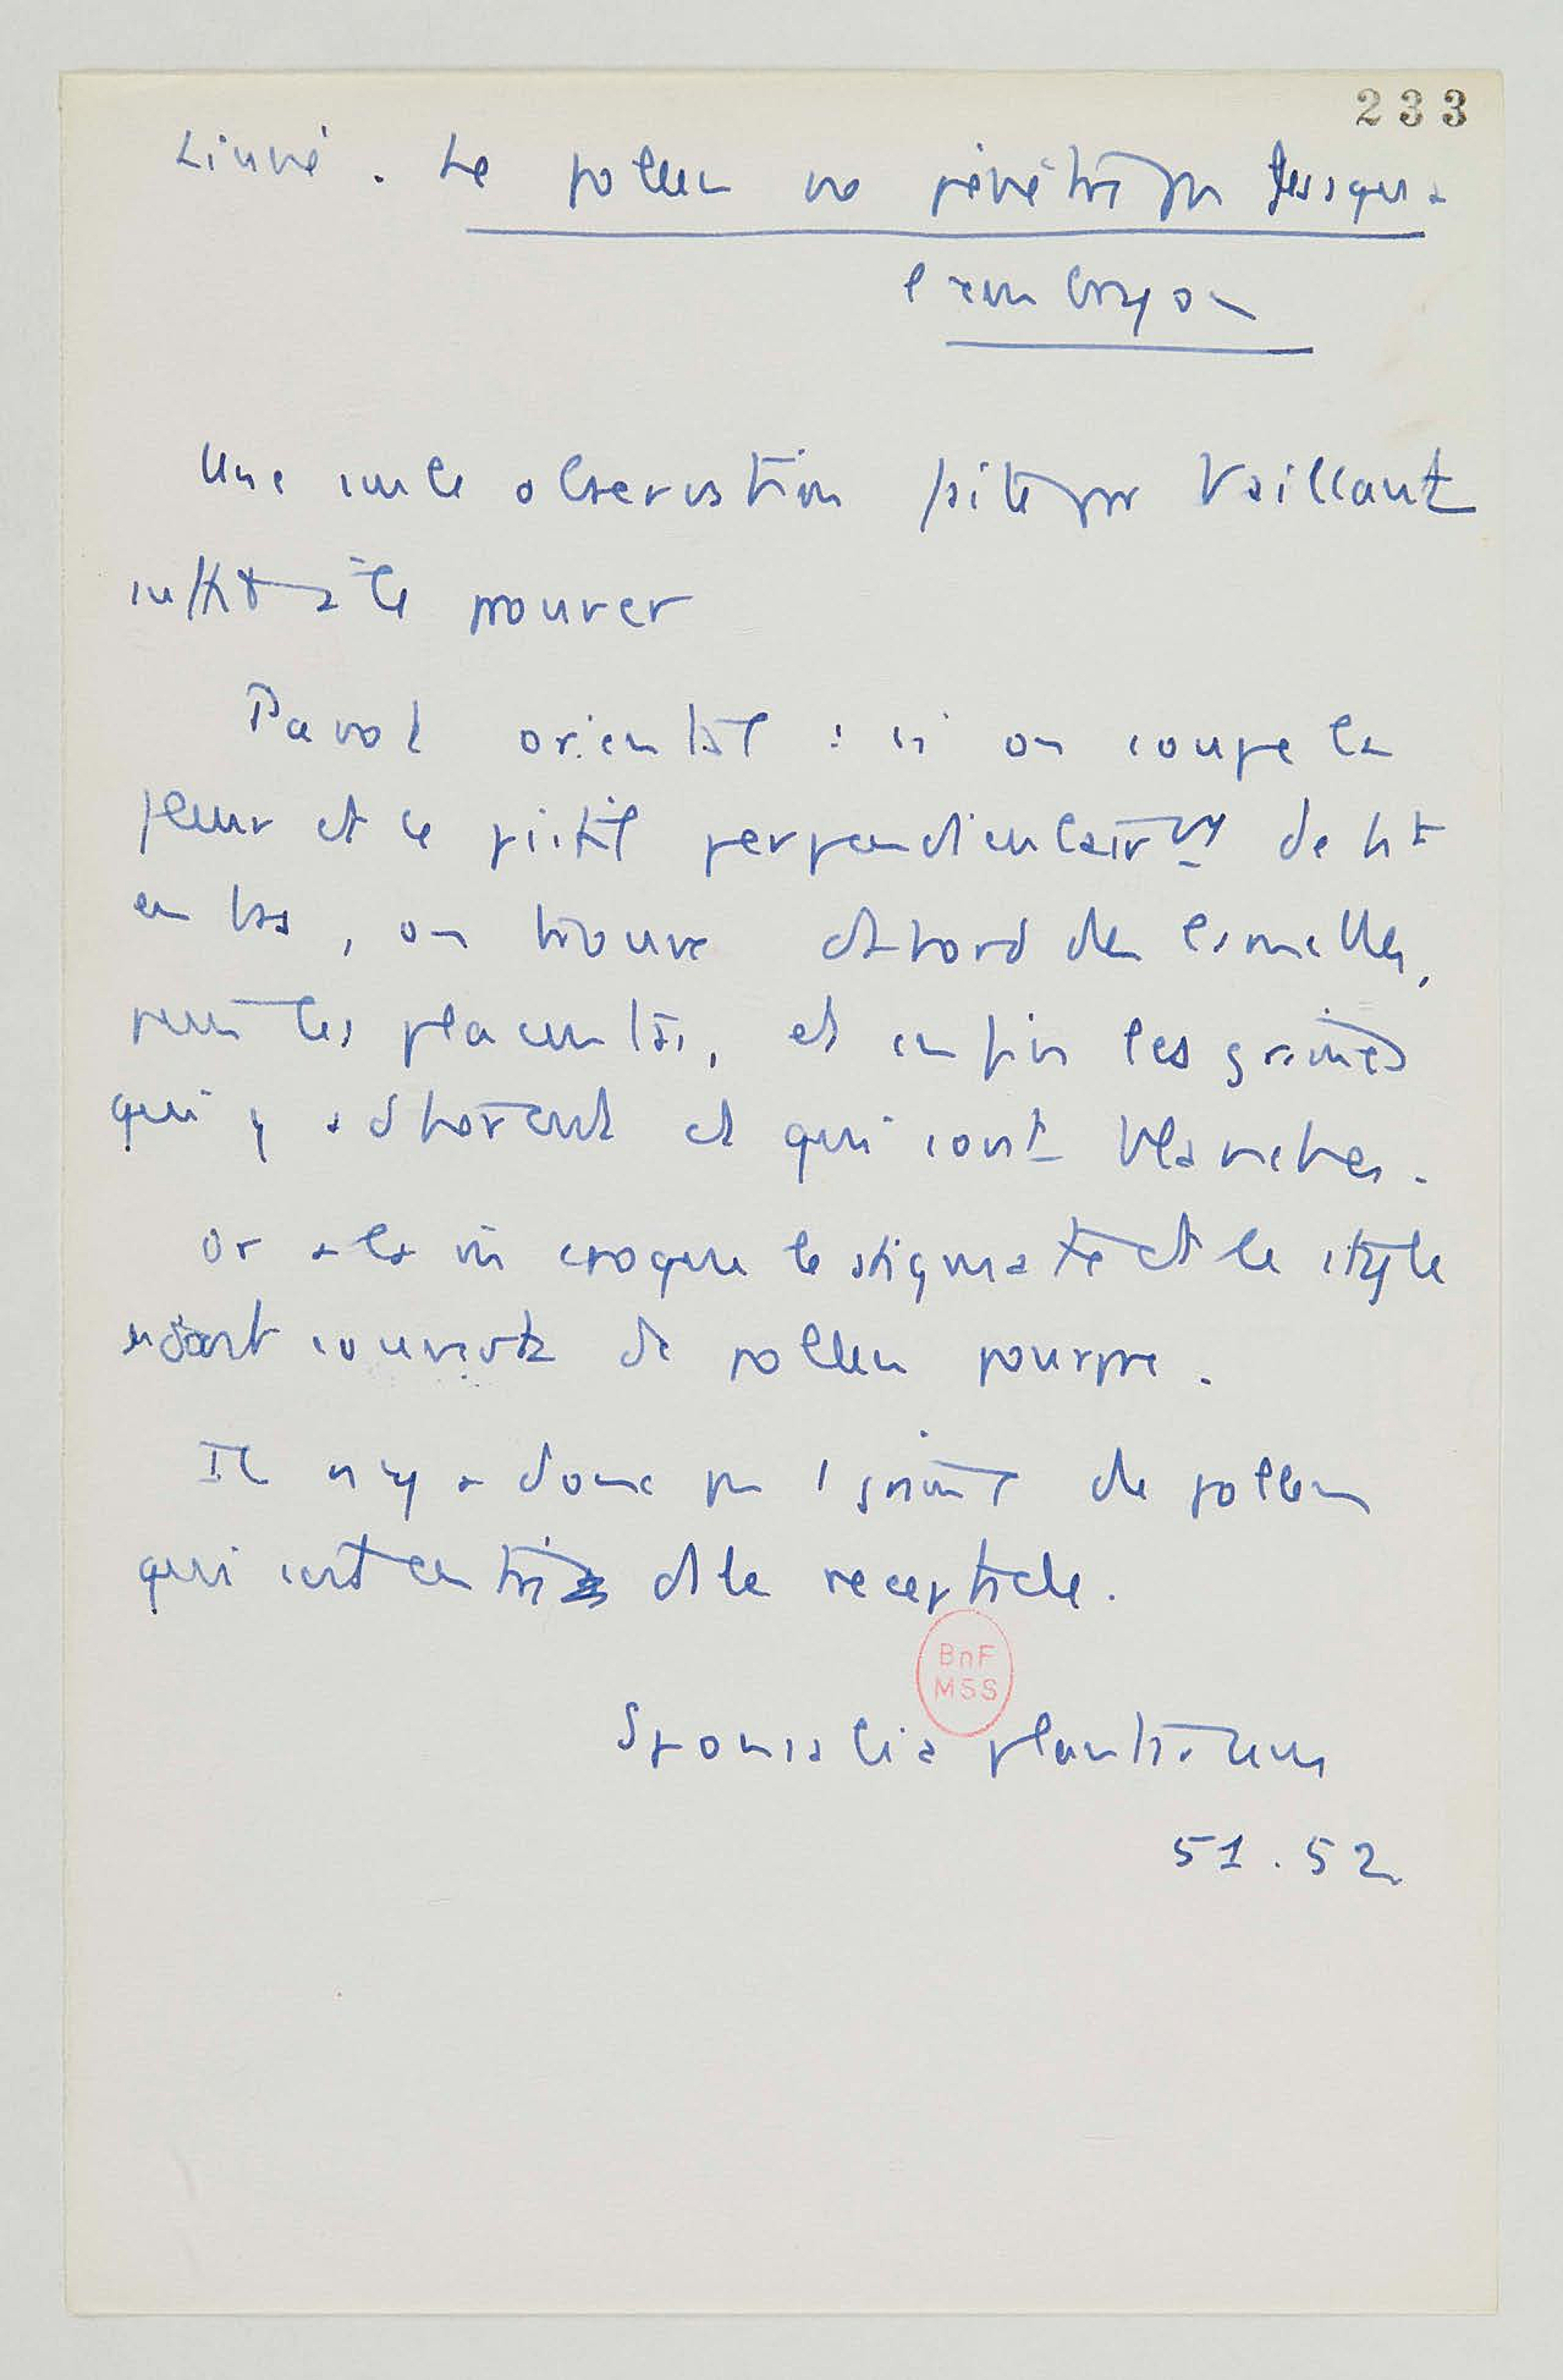 233
Linné. Le pollen ne pénètre pas jusqu'à
l'embryon
Une seule observation faite par Vaillant
suffit à le prouver
Pavot oriental : si on coupe la
fleur et le pistil perpendiculairmt de ht
en bas, on trouve d'abord des lamelles,
puis les placentas, et enfin les graines
qui y adhèrent et qui sont blanches.
Or à la vie le stigmate et le style
sont couverts de pollen pourpre.
Il n'y a donc pas 1 graine de pollen
qui soit entré ds le receptacle.
BnF
MSS
Sponsalia plantarum
51.52